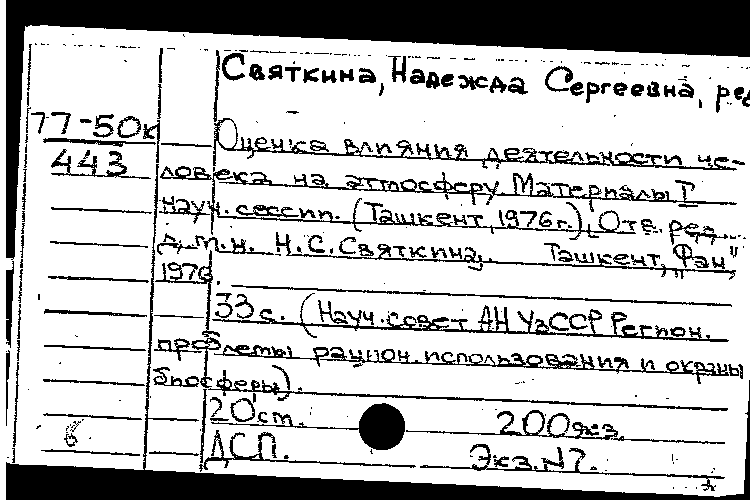 Святкина, Надежда Сергеевна, ред
77-50к
443
Оценка влияния деятельности че-
ловека на атмосферу. Материалы I
науч. сессии. (Ташкент, 1976г.). Отв. ред.
д.т.н. Н.С. Святкина. Ташкент, "Фан",
1976.
33 с. (Науч. совет АН УзССР Регион.
проблемы рацион. использования и охраны
биосферы).
20 ст. 200 экз.
ДСП. Экз. N7.
б